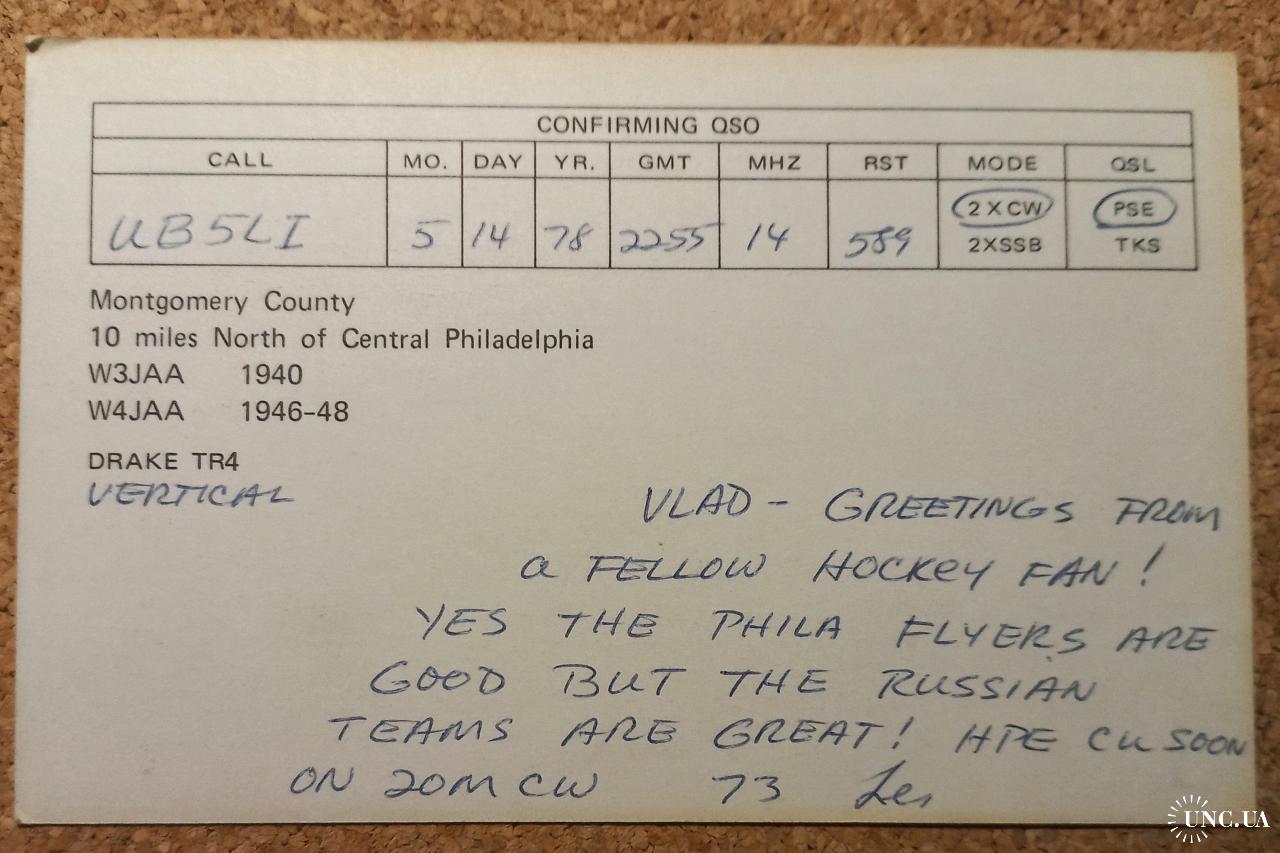 CONFIRMING QSO
CALL MO. DAY YR. GMT MHZ RST MODE QSL
UB5LI 5 14 78 2255 14 589 2XCW PSE
2XSSB TKS
Montgomery County
10 miles North of Central Philadelphia
W3JAA 1940
W4JAA 1946-48
DRAKE TR4
VERTICAL
VLAD - GREETINGS FROM
a FELLOW HOCKEY FAN!
YES THE PHILA FLYERS ARE
GOOD BUT THE RUSSIAN
TEAMS ARE GREAT! HPE CU SOON
ON 20M CW 73 Les
UNC.UA